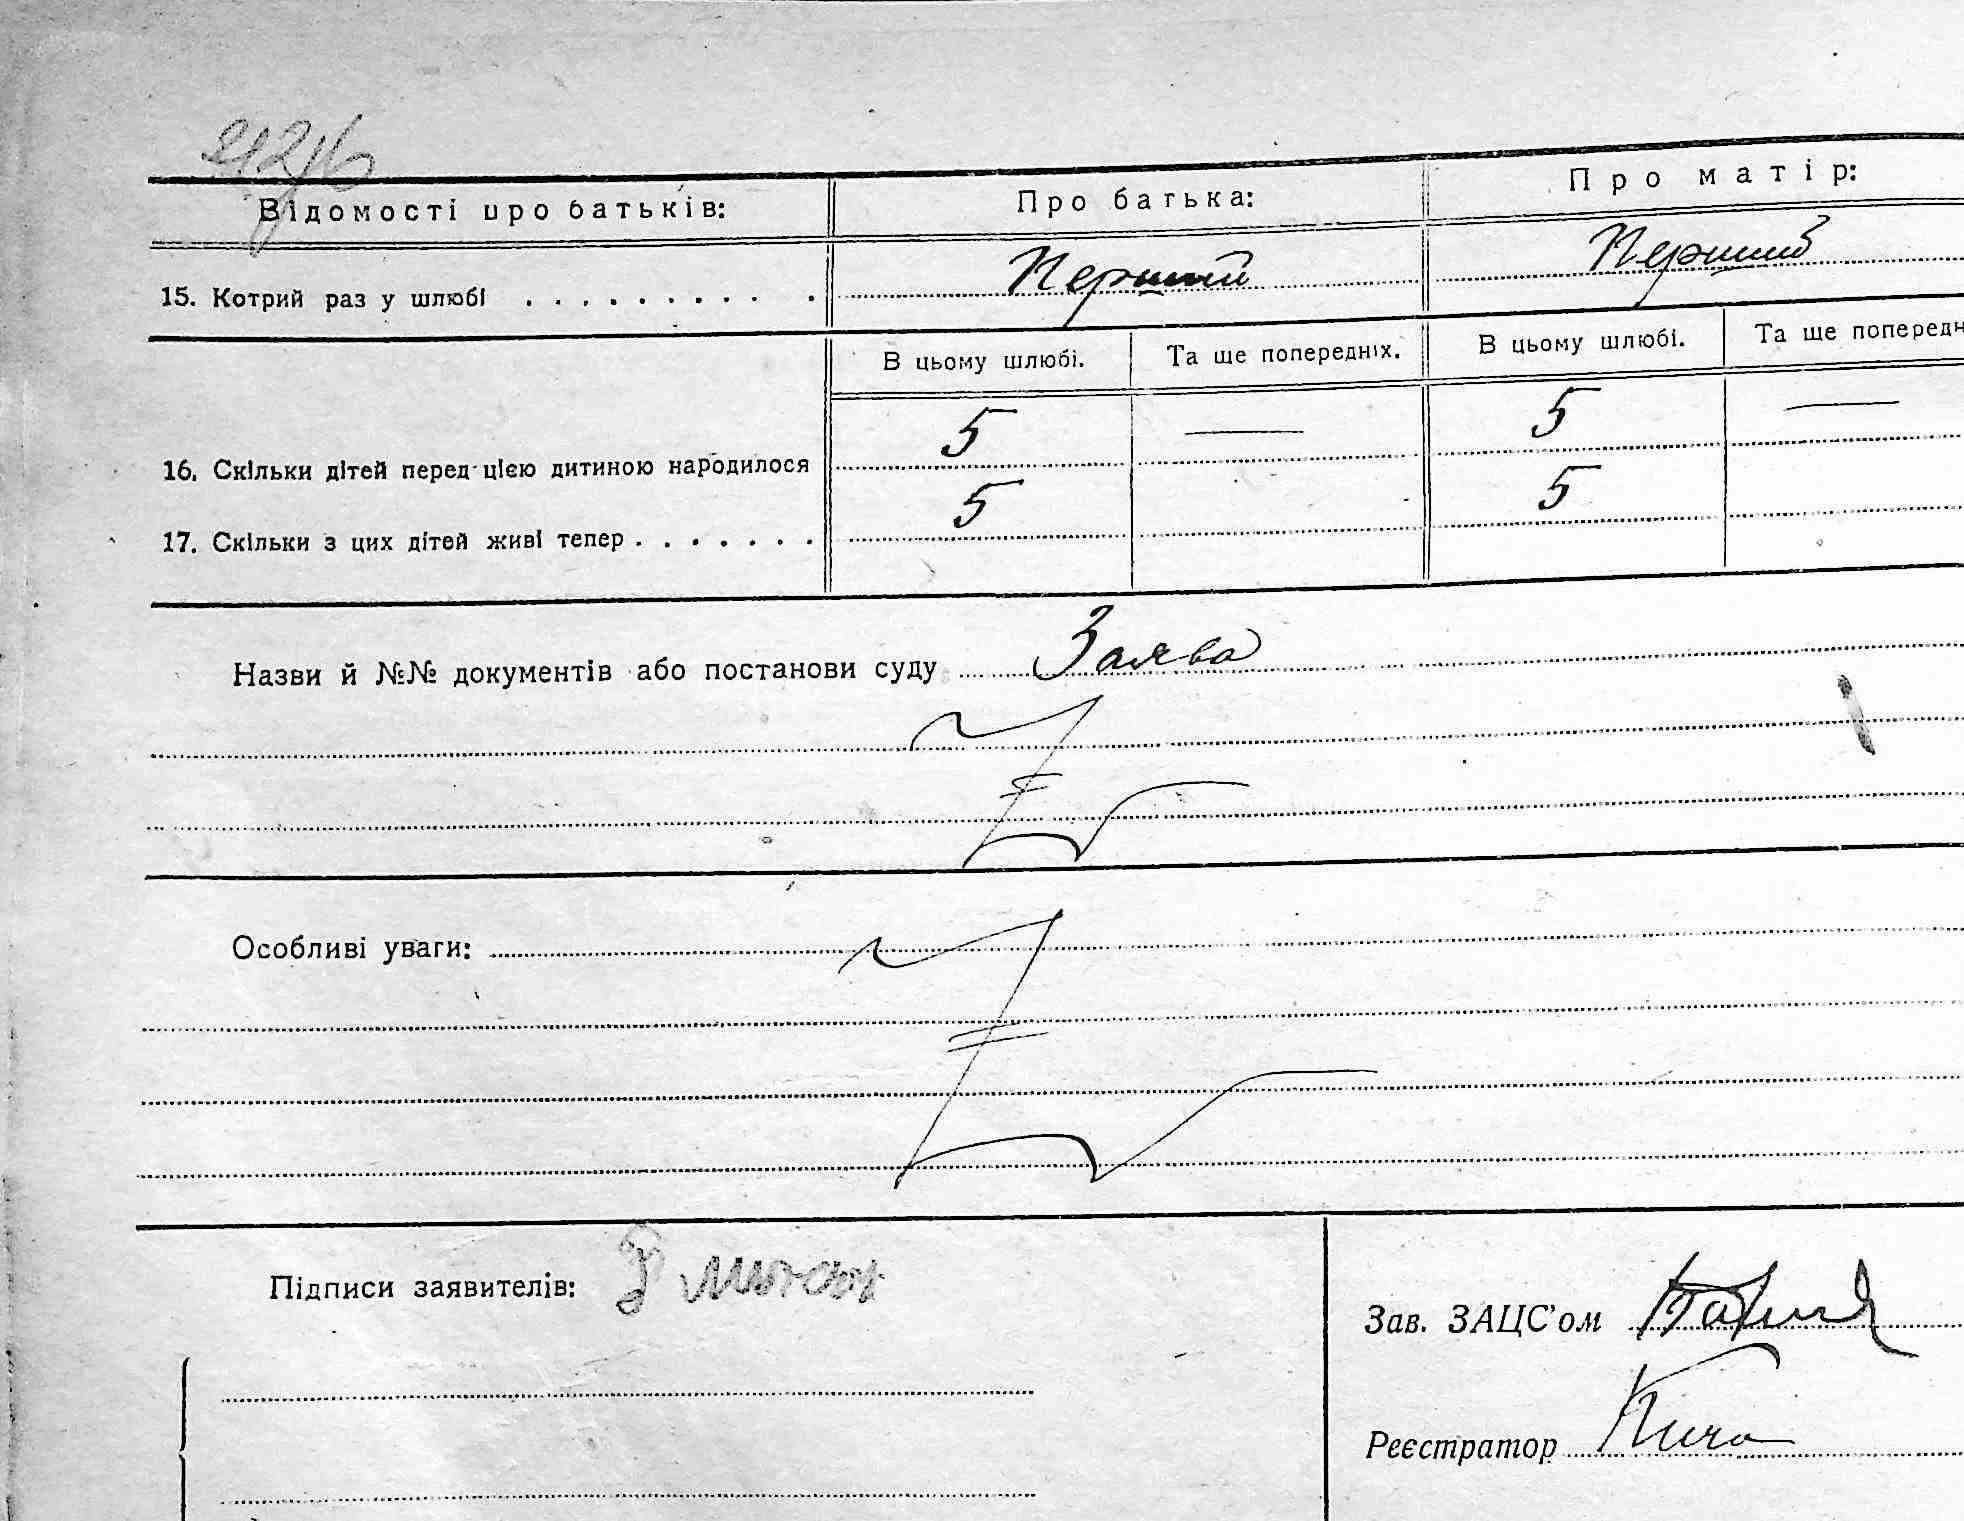 Відомості про батьків: Про батька: Про матір:
15. Котрий раз у шлюбі . . . . . . . . . . Перший Перший
В цьому шлюбі. Та ще попередніх. В цьому шлюбі. Та ще попередн
16. Скільки дітей перед цією дитиною народилося 5 — 5 —
17. Скільки з цих дітей живі тепер . . . . . . . 5 5
Назви й №№ документів або постанови суду Заява
Особливі уваги:
Підписи заявителів:
Зав. ЗАЦС'ом
Реєстратор